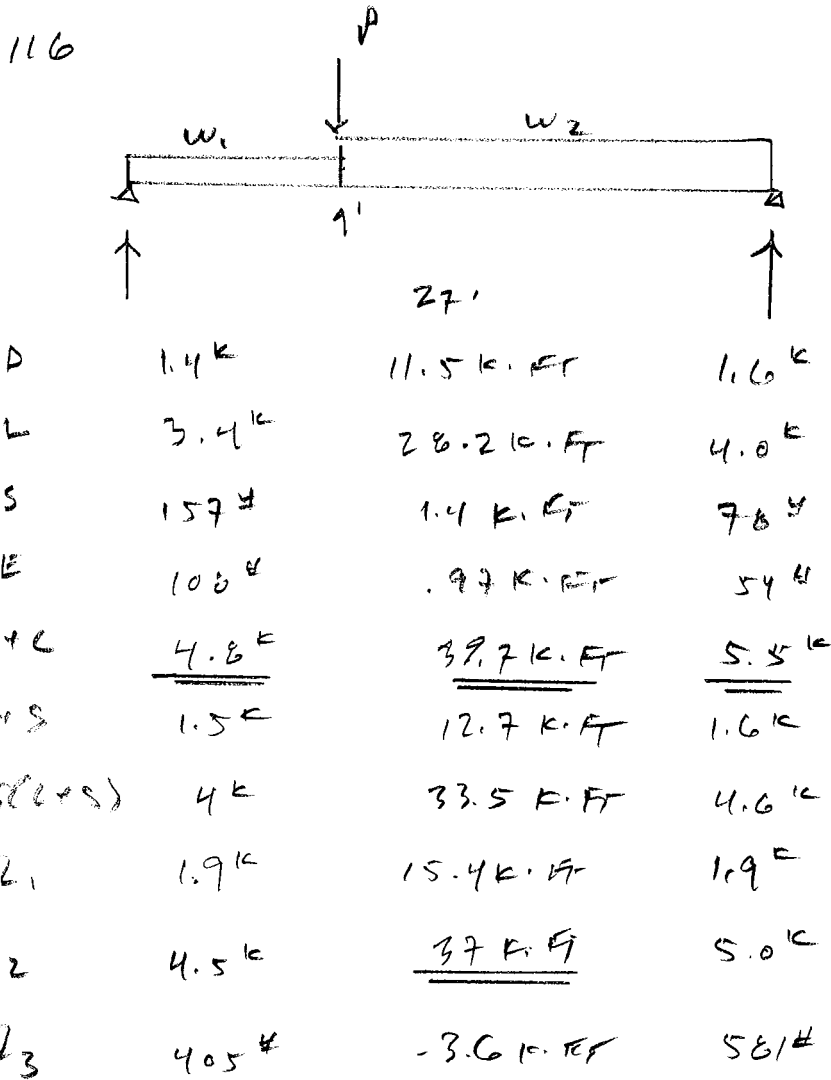 116
P
w1
w2
9'
27'
D 1.4 K 11.5 K.FT 1.6 K
L 3.4 K 28.2 K.FT 4.0 K
S 157 # 1.4 K.FT 78 #
E 108 # .97 K.FT 54 #
+L 4.8 K 39.7 K.FT 5.5 K
+S 1.5 K 12.7 K.FT 1.6 K
(L+S) 4 K 33.5 K.FT 4.6 K
1 1.9 K 15.4 K.FT 1.9 K
2 4.5 K 37 K.FT 5.0 K
3 405 # -3.6 K.FT 581 #